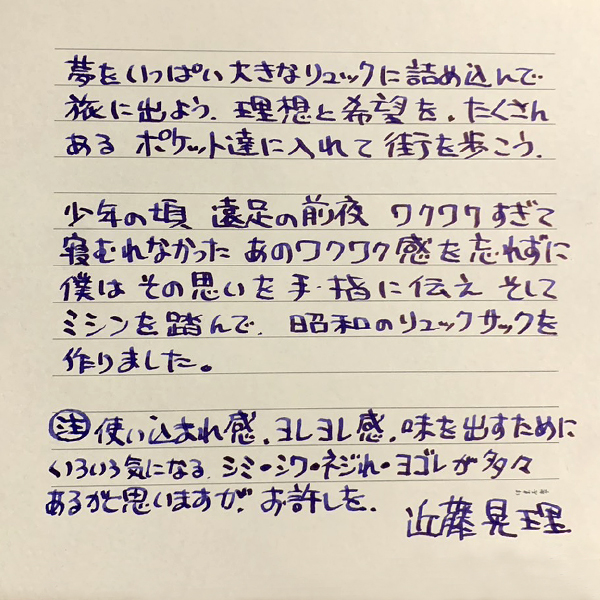 夢をいっぱい大きなリュックに詰め込んで
旅に出よう。理想と希望を、たくさん
ある ポケット達に入れて 街を歩こう。
少年の頃 遠足の前夜 ワクワクすぎて
寝むれなかった あのワクワク感を忘れずに
僕は その思いを 手・指に伝え そして
ミシンを踏んで、昭和のリュックサックを
作りました。
㊟ 使い込まれ感、ヨレヨレ感、味を出すために
いろいろ気になる、シミ・シワ・ネジれ・ヨゴレが多々
あるかと思いますが、お許しを、
近藤晃理